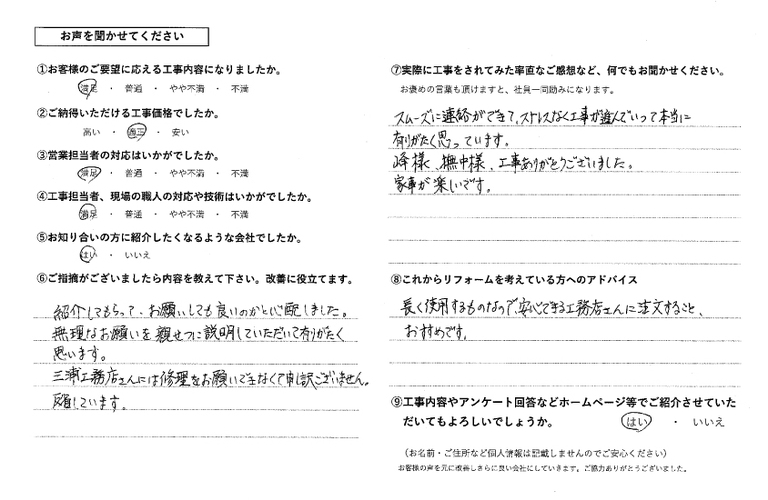 お声を聞かせてください
①お客様のご要望に応える工事内容になりましたか。
満足 ・ 普通 ・ やや不満 ・ 不満
②ご納得いただける工事価格でしたか。
高い ・ 適正 ・ 安い
③営業担当者の対応はいかがでしたか。
満足 ・ 普通 ・ やや不満 ・ 不満
④工事担当者、現場の職人の対応や技術はいかがでしたか。
満足 ・ 普通 ・ やや不満 ・ 不満
⑤お知り合いの方に紹介したくなるような会社でしたか。
はい ・ いいえ
⑥ご指摘がございましたら内容を教えて下さい。改善に役立てます。
紹介してもらって、お願いしても良いのかと心配しました。
無理なお願いを親せつに説明していただいて有りがたく
思います。
三浦工務店さんには修理をお願いできなくて申し訳ございません。
反省しています。
⑦実際に工事をされてみた率直なご感想など、何でもお聞かせください。
お褒めの言葉も頂けますと、社員一同励みになります。
スムーズに連絡ができて、ストレスなく工事が進んでいって本当に
有りがたく思っています。
様、撫中様、工事ありがとうございました。
家事が楽しいです。
⑧これからリフォームを考えている方へのアドバイス
長く使用するものなので、安心できる工務店さんに注文すること、
おすすめです。
⑨工事内容やアンケート回答などホームページ等でご紹介させていた
だいてもよろしいでしょうか。 はい ・ いいえ
(お名前・ご住所など個人情報は記載しませんのでご安心ください)
お客様の声を元に改善しさらに良い会社にしていきます。ご協力ありがとうございました。